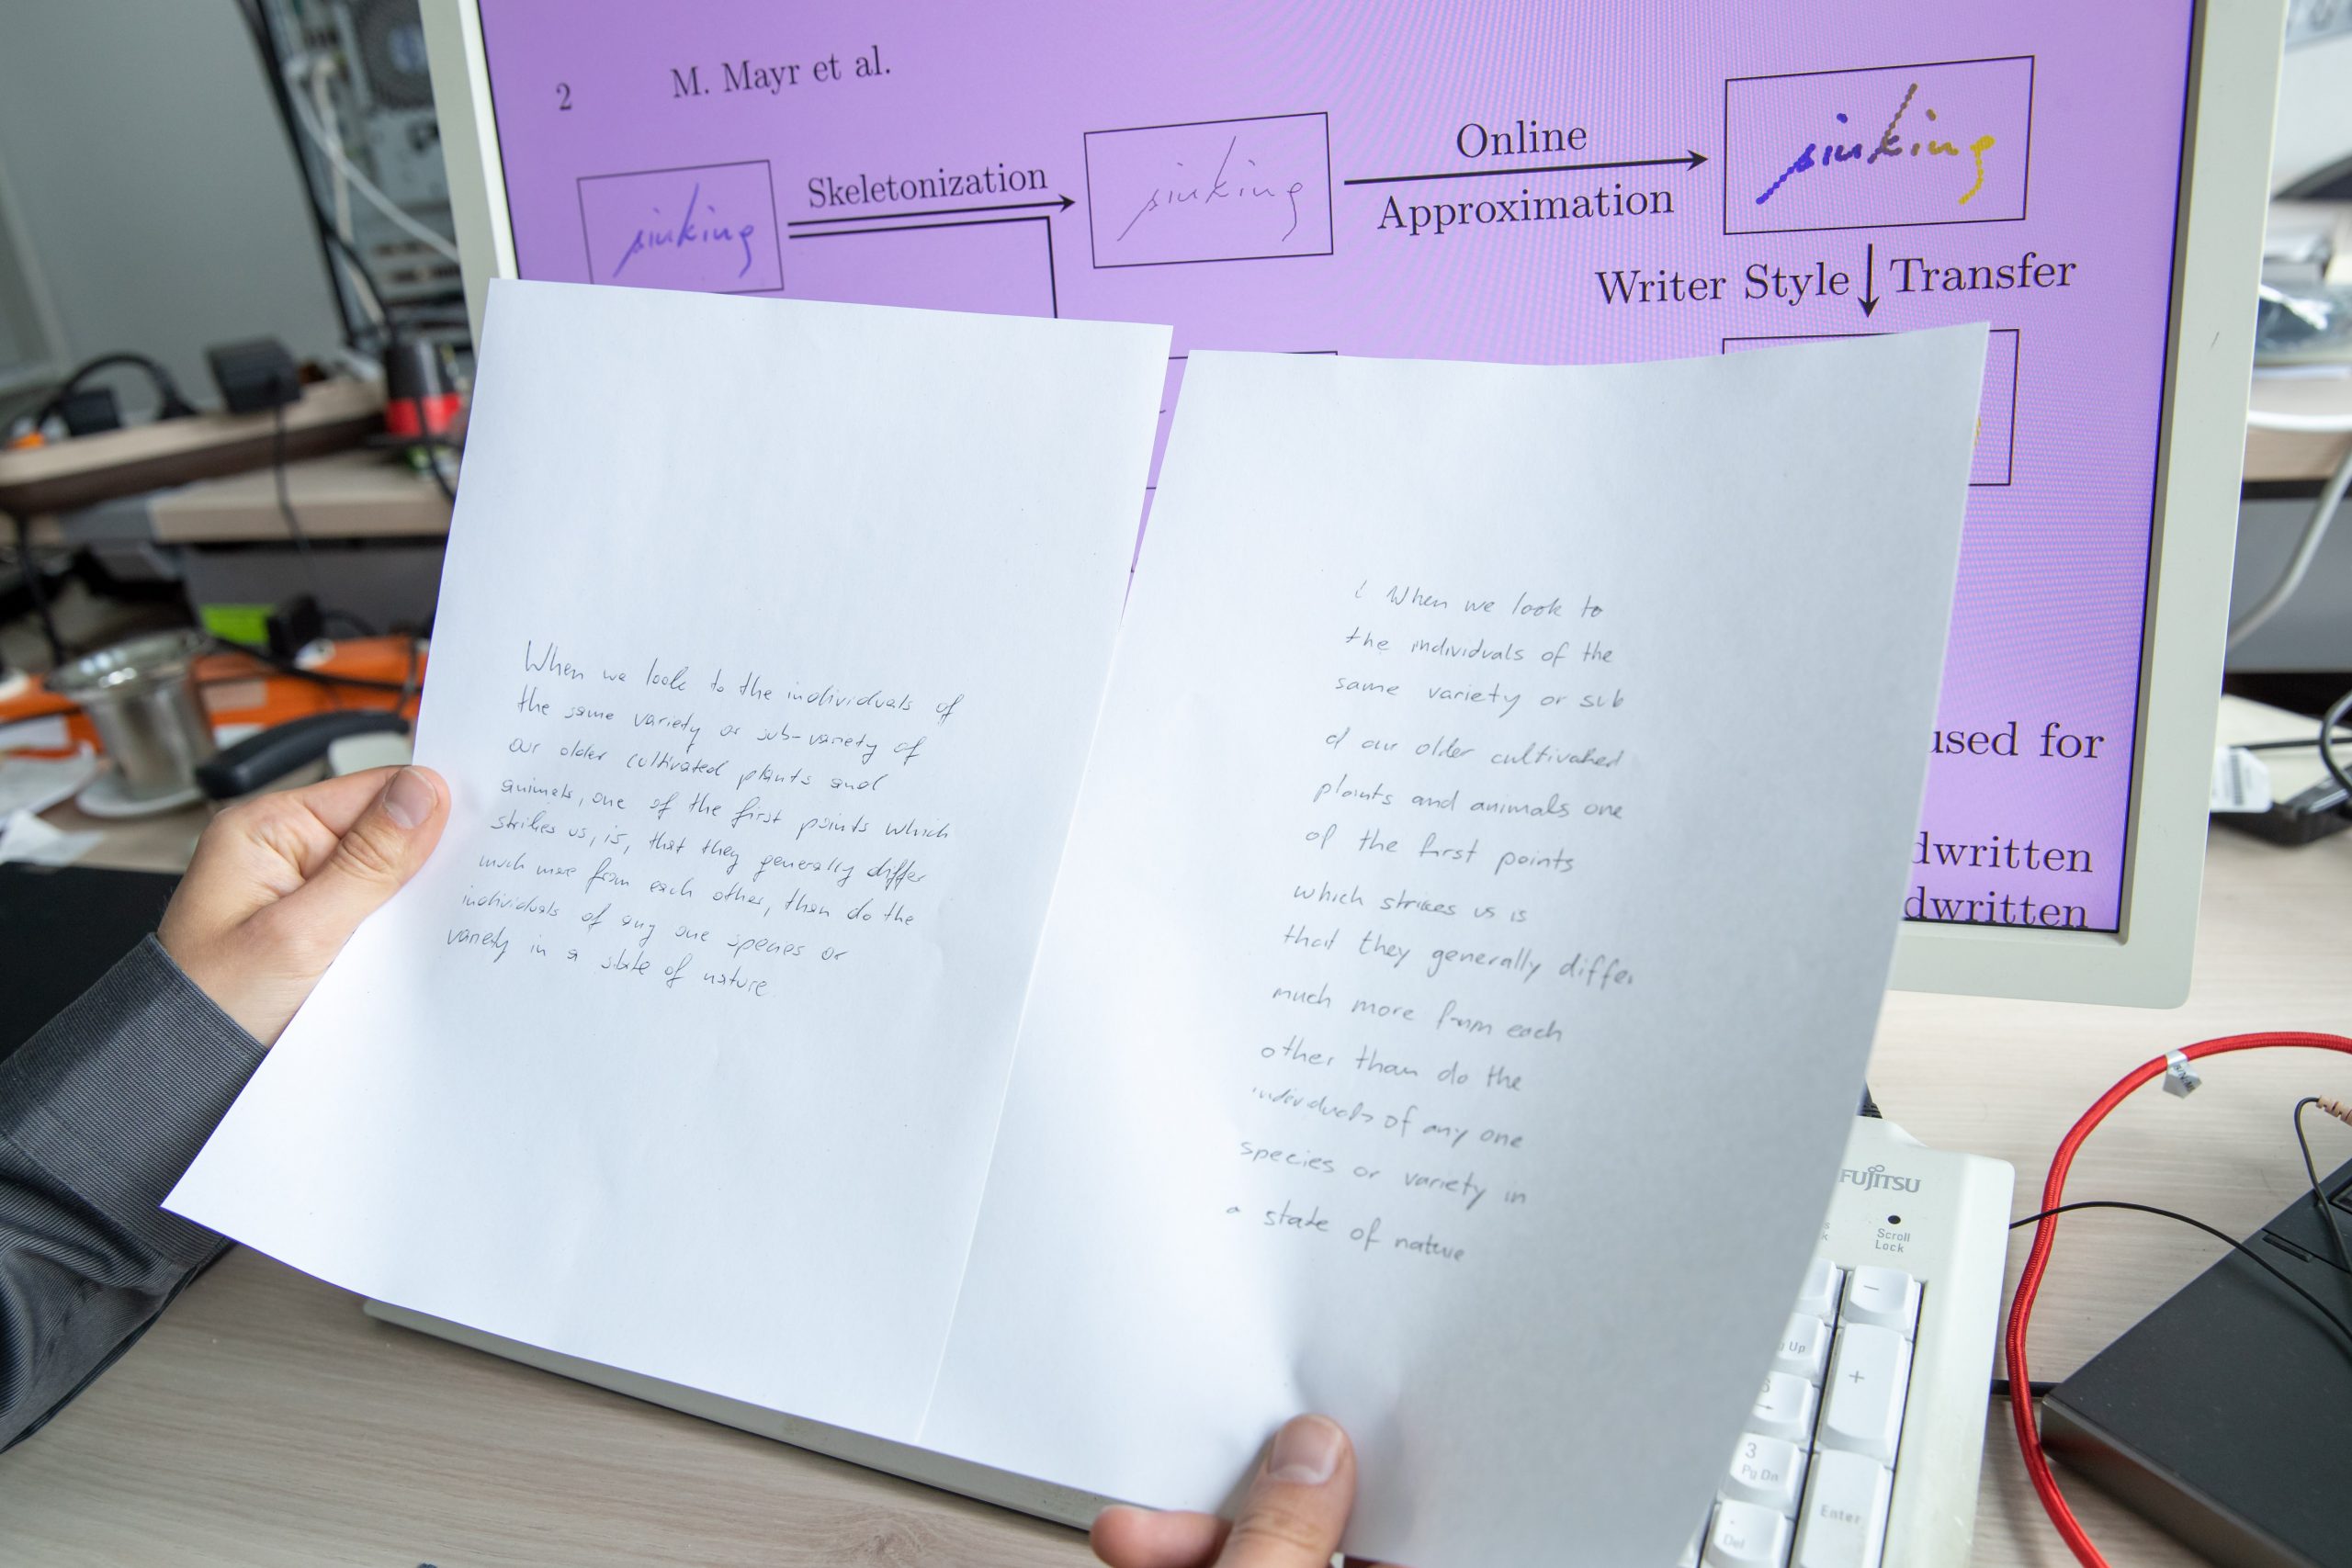 2 M. Mayr et al.
sinking
Skeletonization
sinking
Online
Approximation
sinking
Writer Style Transfer
used for
dwritten
dwritten
When we look to the individuals of
the same variety or sub-variety of
our older cultivated plants and
animals, one of the first points which
strikes us, is, that they generally differ
much more from each other, than do the
individuals of any one species or
variety in a state of nature
When we look to
the individuals of the
same variety or sub
of our older cultivated
plants and animals one
of the first points
which strikes us is
that they generally differ
much more from each
other than do the
individuals of any one
species or variety in
a state of nature
FUJITSU
Scroll
Lock
-
Up
+
3
Pg Dn
Enter
.
Del